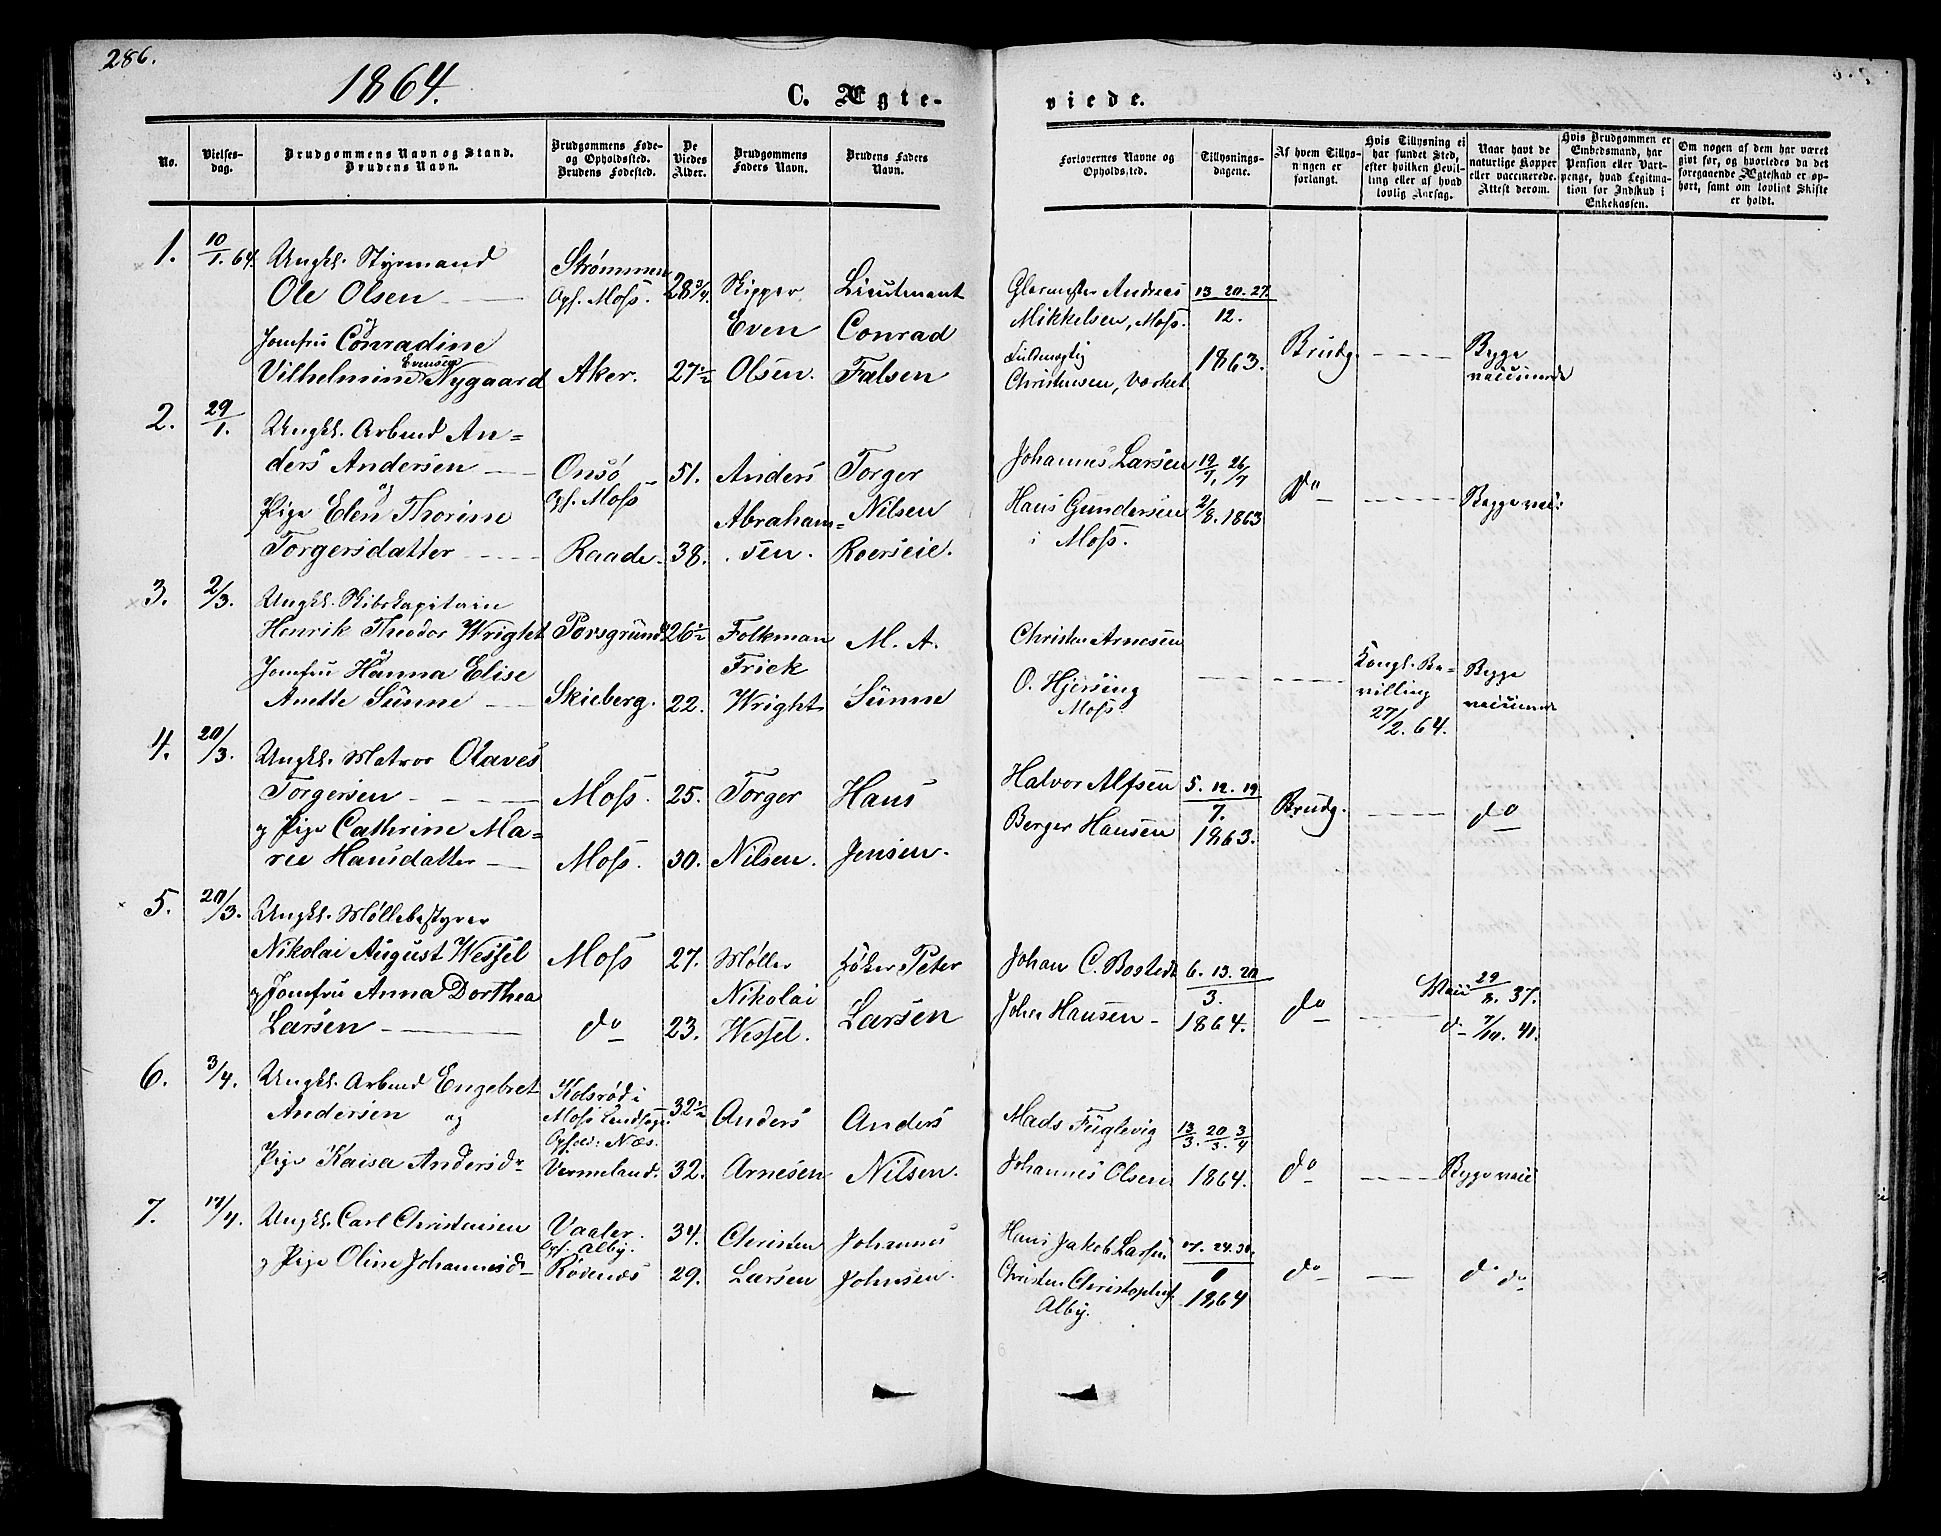 286.
1864.
C. Ægte-
viede.
No.
Vielses-
dag.
Brudgommens Navn og Stand.
Brudens Navn.
Brudgommens Føde-
og Opholdssted.
Brudens Fødested.
De
Viedes
Alder.
Brudgommens
Faders Navn.
Brudens Faders
Navn.
Forlovernes Navne og
Opholdssted.
Tillysnings-
dagene.
Af hvem Tillys-
ningen er
forlangt.
Hvis Tillysning ei
har fundet Sted,
efter hvilken Bevil-
ling eller af hvad
lovlig Aarsag.
Naar havt de
naturlige Kopper
eller vaccinerede.
Attest derom.
Hvis Brudgommen er
Embedsmand, har
Pension eller Vart-
penge, hvad Legitima-
tion for Indskud i
Enkekassen.
Om nogen af dem har været
gift før, og hvorledes da det
foregaaende Ægteskab er op-
hørt, samt om lovligt Skifte
er holdt.
1. 10/1. 64. Ungkl. Styrmand
Ole Olsen
og
Jomfru Conradine
Evensen
Vilhelmine Nygaard
Strømmen
Opf. Moss.
Aker.
28 3/4.
27 1/2
Skipper
Even
Olsen.
Lieutenant
Conrad
Falsen
Glarmester Andreas
Mikkelsen, Moss.
Fuldmægtig
Christensen, Værket
13 20. 27.
12.
1863.
Brudg.
Begge
vaccinerede
2. 29/1. Ungkl. Arbmd An-
ders Andersen
og
Pige Elen Thorine
Torgersdatter
Onsø
Opf. Moss
Raade.
51.
38.
Anders
Abraham-
sen.
Torger
Nilsen
Roerseie.
Johannes Larsen
Hans Gundersen
i Moss.
19/7. 26/7
2/8. 1863
do
Begge vacc:
3. 2/3. Ungkl. Skibskapitain
Henrik Theodor Wright
og
Jomfru Hanna Elise
Anette Sünne
Porsgrund
Skieberg.
26 1/2
22.
Folkman
Frick
Wright
M. A.
Sünne
Christen Arnesen
O. Hjersing
Moss.
Kongl. Be-
villing
27/2. 64.
Begge
vaccinerede
4. 20/3. Ungkl. Matros Olaves
Torgersen
og Pige Cathrine Ma-
rie Hansdatter
Moss.
Moss.
25.
30.
Torger
Nilsen.
Hans
Jensen.
Halvor Alfsen
Berger Hansen
5. 12. 19
7.
1863.
Brudg.
do
5. 20/3. Ungkl. Møllebestyrer
Nikolai August Wessel
og Jomfru Anna Dorthea
Larsen
Moss
do
27.
23.
Møller
Nikolai
Wessel.
Peter
Larsen
Johan C. Bostedt
Johan Hansen
6. 13. 20
3.
1864.
do
Vacc 29/8. 37.
do 7/10. 41.
6. 3/4. Ungkl. Arbmd Engebret
Andersen og
Pige Kaisa Andersdr
Kolsrød i
Moss Landsogn.
Opf. Næs.
Vermeland.
32 1/2
32.
Anders
Arnesen
Anders
Nilsen.
Mads Fuglevig
Johannes Olsen
13/3. 20/3. 3/4
1864.
do
Begge vacc
7. 17/4. Ungkl. Carl Christensen
og Pige Oline Johannesdr
Vaaler.
Opf. Alby.
Rødenæs
34.
29.
Christen
Larsen
Johannes
Johnsen.
Hans Jakob Larsen
Christen Christophers.
Alby.
24. 31.
1864
do
do do